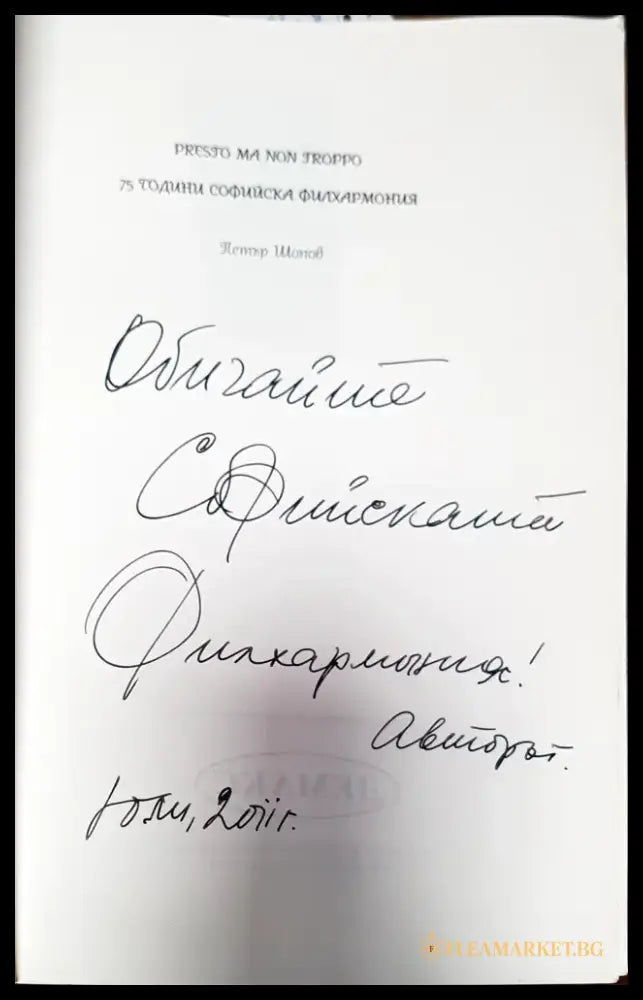 PRESTO MA NON TROPPO
75 ГОДИНИ СОФИЙСКА ФИЛХАРМОНИЯ
Петър Шопов
Обичайте
Софийската
Филхармония!
Авторът.
Юли, 2011г.
FLEAMARKET.BG